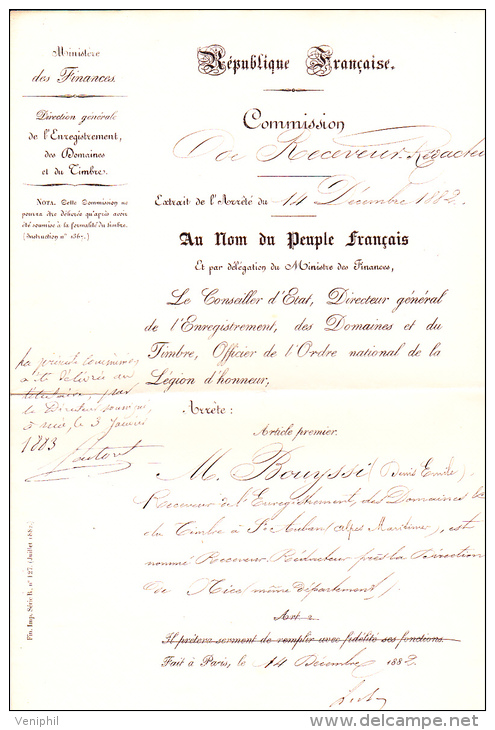 Ministère
des Finances.
Direction générale
de l'Enregistrement,
des Domaines
et du Timbre.
NOTA. Cette Commission ne
pourra être délivrée qu'après avoir
été soumise à la formalité du timbre.
(Instruction n° 1367.)
République Française.
Commission
De Receveur-Rédacteu
Extrait de l'Arrêté du 14 Décembre 1882.
Au Nom du Peuple Français
Et par délégation du Ministre des Finances,
Le Conseiller d'État, Directeur général
de l'Enregistrement, des Domaines et du
Timbre, Officier de l'Ordre national de la
Légion d'honneur,
La présente commission
a été délivrée au
titulaire, par
le Directeur soussigné,
le 3 Janvier
1883
Arrête:
Article premier.
M. Bouyssi (Denis Emile)
Receveur de l'Enregistrement, des Domaines &a
du Timbre à St Auban (Alpes Maritimes), est
nommé Receveur Rédacteur près la Direction
de Nice (même département).
Art. 2.
Il prêtera serment de remplir avec fidélité ses fonctions.
Fait à Paris, le 14 Décembre 1882
Fin. Imp. Série B, n° 127. (Juillet 1882.)
Veniphil
www.delcampe.net